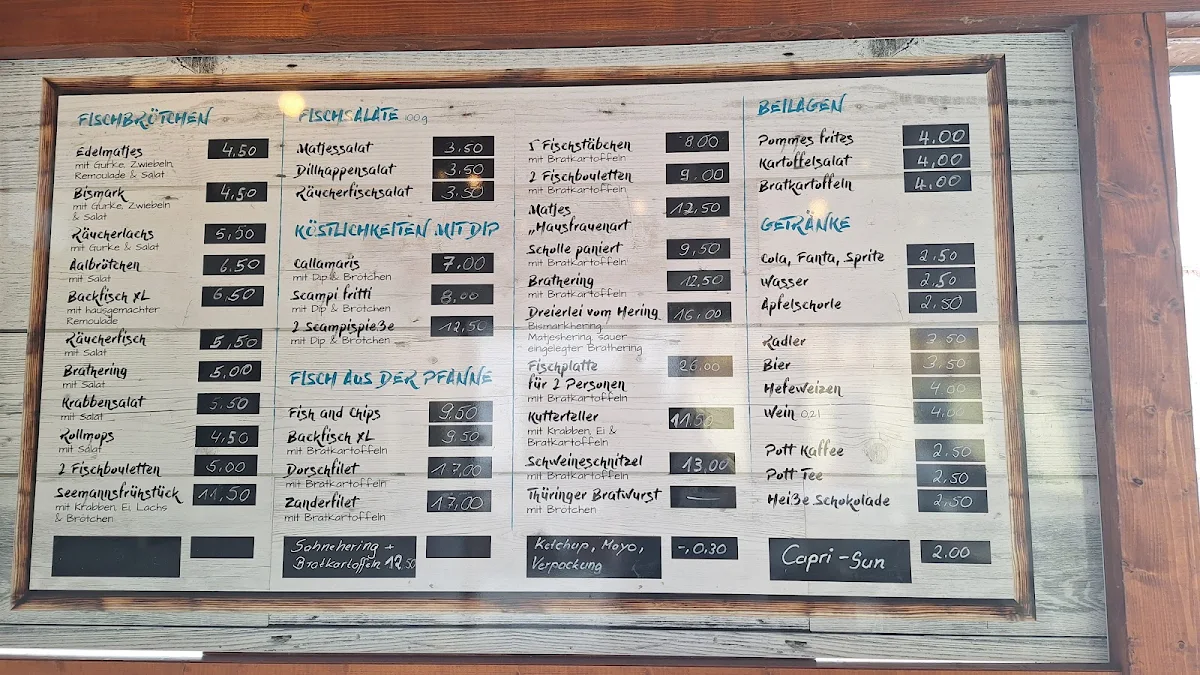 FISCHBRÖTCHEN
Edelmatjes 4,50
mit Gurke, Zwiebeln,
Remoulade & Salat
Bismark 4,50
mit Gurke, Zwiebeln
& Salat
Räucherlachs 5,50
mit Gurke & Salat
Aalbrötchen 6,50
mit Salat
Backfisch XL 6,50
mit hausgemachter
Remoulade
Räucherfisch 5,50
mit Salat
Brathering 5,00
mit Salat
Krabbensalat 5,50
mit Salat
Rollmops 4,50
mit Salat
2 Fischbouletten 5,00
Seemannsfrühstück 11,50
mit Krabben, Ei, Lachs
& Brötchen
FISCHSALATE 100g
Matjessalat 3,50
Dillhappensalat 3,50
Räucherfischsalat 3,50
KÖSTLICHKEITEN MIT DIP
Callamaris 7,00
mit Dip & Brötchen
Scampi fritti 8,00
mit Dip & Brötchen
2 Scampispieße 12,50
mit Dip & Brötchen
FISCH AUS DER PFANNE
Fish and Chips 9,50
Backfisch XL 9,50
mit Bratkartoffeln
Dorschfilet 17,00
mit Bratkartoffeln
Zanderfilet 17,00
mit Bratkartoffeln
Sahnehering +
Bratkartoffeln 12,50
5 Fischstäbchen 8,00
mit Bratkartoffeln
2 Fischbouletten 9,00
mit Bratkartoffeln
Matjes 12,50
„Hausfrauenart
Scholle paniert 9,50
mit Bratkartoffeln
Brathering 12,50
mit Bratkartoffeln
Dreierlei vom Hering 16,00
Bismarkhering,
Matjeshering, sauer
eingelegter Brathering
Fischplatte 26,00
für 2 Personen
mit Bratkartoffeln
Kutterteller 11,50
mit Krabben, Ei &
Bratkartoffeln
Schweineschnitzel 13,00
mit Bratkartoffeln
Thüringer Bratwurst —
mit Brötchen
Ketchup, Mayo, -,0.30
Verpackung
BEILAGEN
Pommes frites 4,00
Kartoffelsalat 4,00
Bratkartoffeln 4,00
GETRÄNKE
Cola, Fanta, Sprite 2,50
Wasser 2,50
Apfelschorle 2,50
Radler 3,50
Bier 3,50
Hefeweizen 4,00
Wein 0,2l 4,00
Pott Kaffee 2,50
Pott Tee 2,50
Heiße Schokolade 2,50
Capri-Sun 2.00